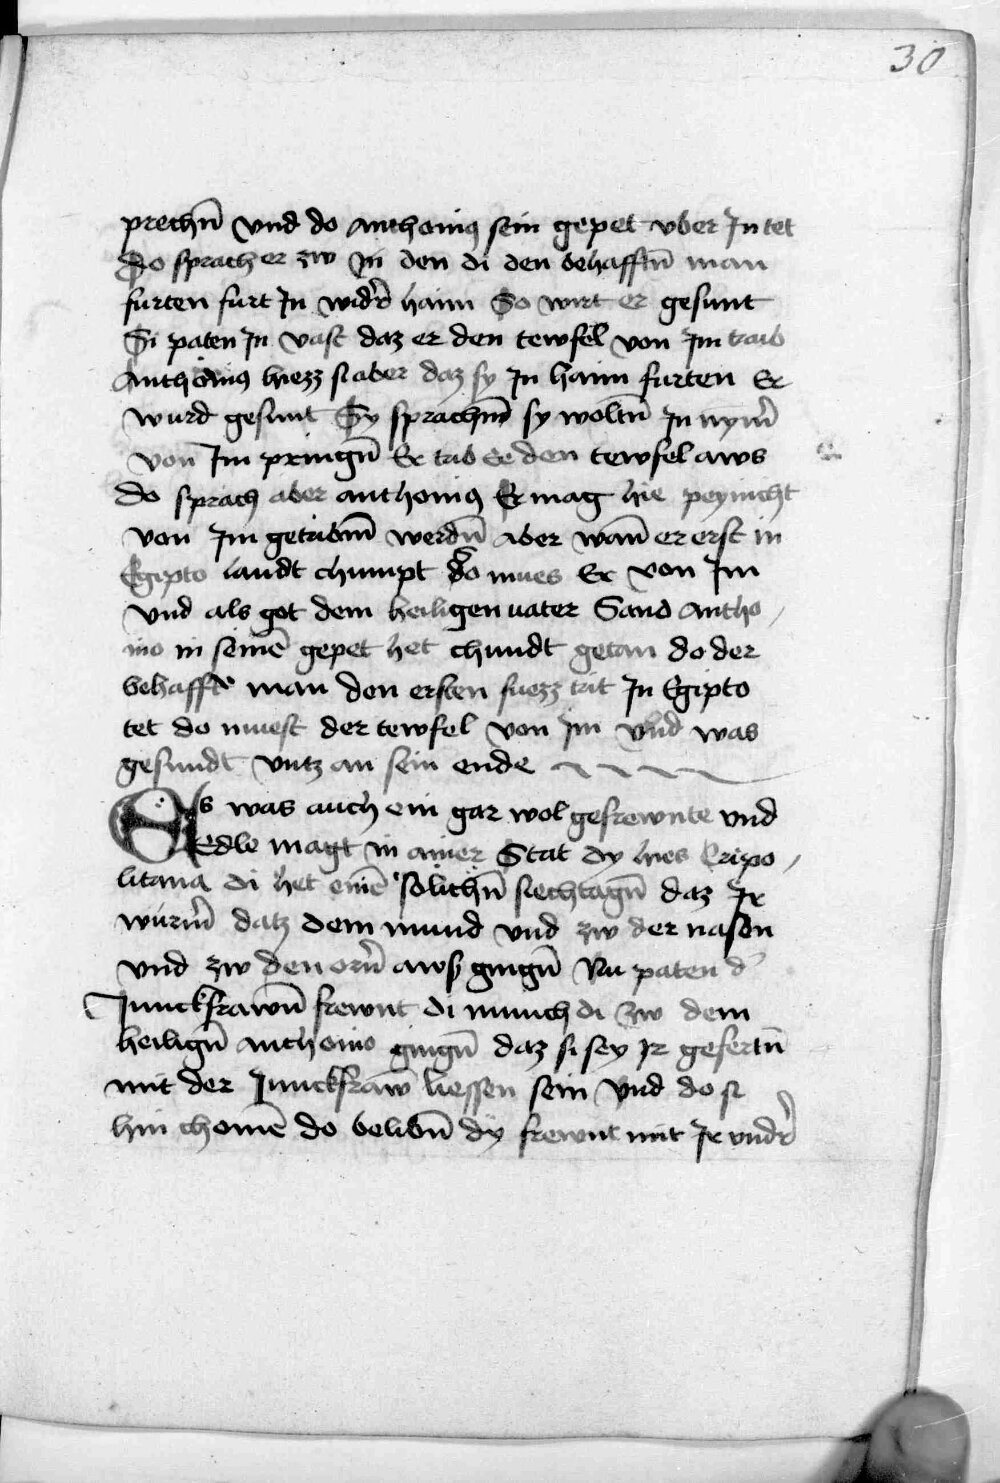 30
prechn̄ vnd do Anthonius sein gepet vber In tet
Do sprach er zw in den di den behafftn̄ man
furten furt In wider haim So wirt er gesunt
Si paten In vast daz er den tewfel von Im traib
Anthonius hiezz si aber daz sy In haim furten Er
wurd gesunt Sy sprachn̄ sy woltn̄ In nym̄er
von Im pringn̄ Er trib ee den tewfel aws
do sprach aber anthonius Er mag hie pey nicht
von Im getribn̄ werdn̄ aber wan̄ er erst in
Egipto landt chumpt So mues Er von Im
vnd als got dem heiligen uater Sand Antho
nio in seinē gepet het chundt getan do der
behafft man den ersten fuezz trit In Egipto
tet do muest der tewfel von Im vnd was
gesundt vntz an sein ende
Es was auch ein gar wol gefrewnte vnd
Edle magt in ainer Stat dy hies Tripo
litana di het einē sölichn̄ siechtagn̄ daz Ir
würm̄ datz dem mund vnd zw der nasen
vnd zw den orn̄ aws gingn̄ Nu paten d'
Junckfrawn̄ frewnt di münich di zw dem
heilign̄ Anthonio gingn̄ daz si sey Ir gefertn̄
mit der Junckfraw̄ liessen sein vnd do si
hin chomē do belibn̄ dy frewnt mit Ir vnder